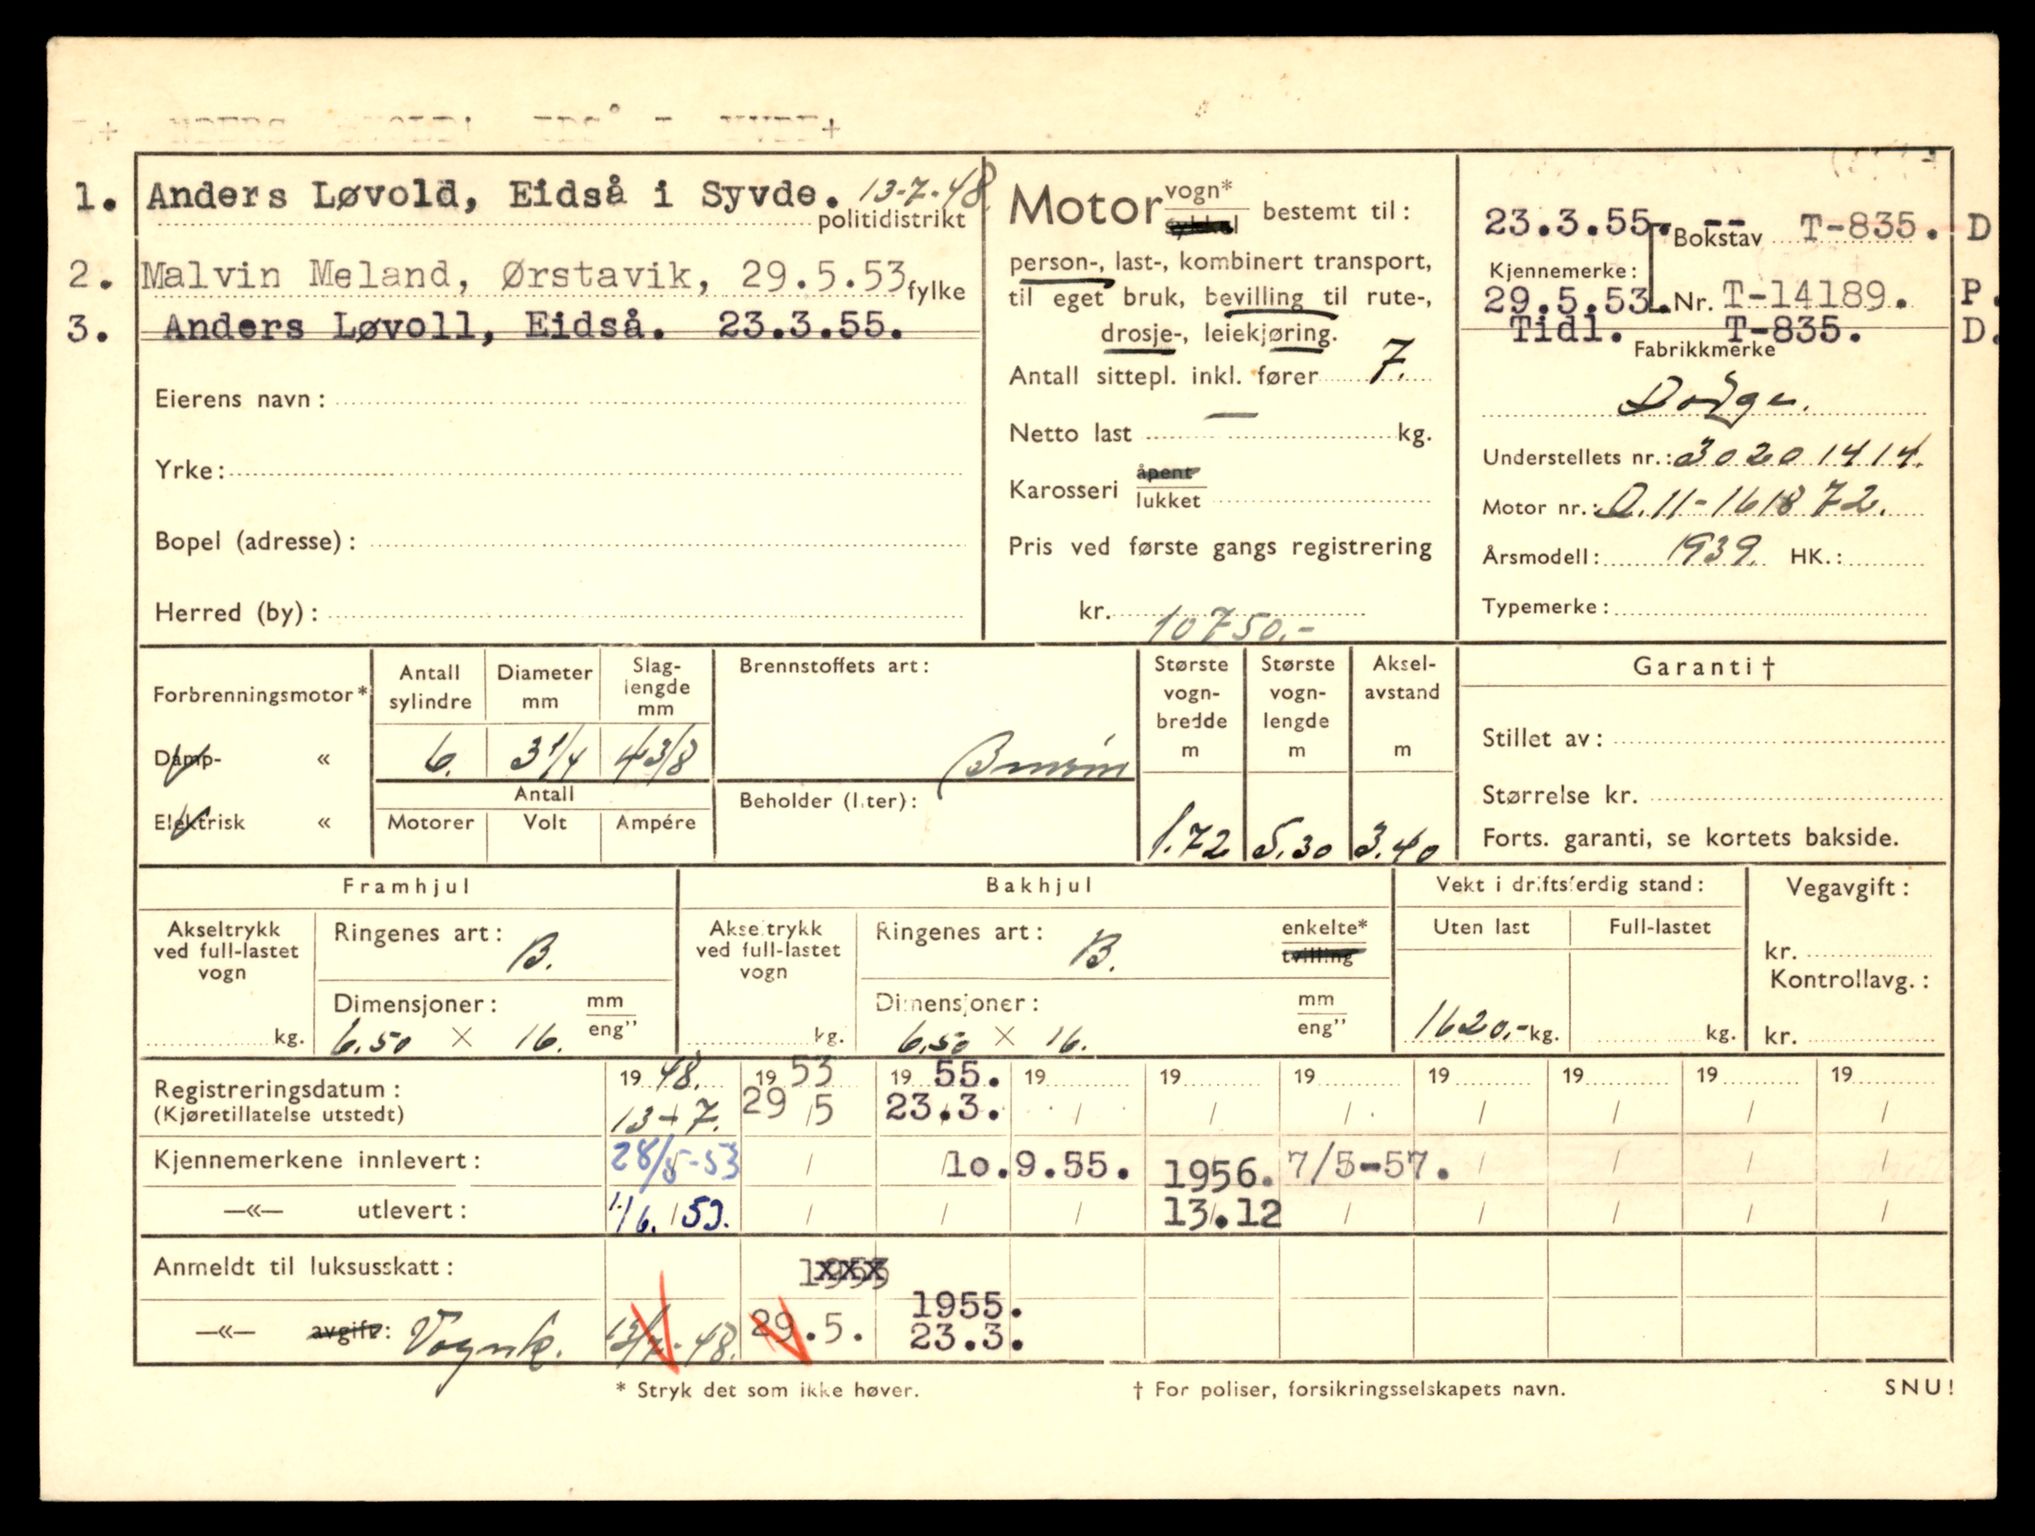 1. Anders Løvold, Eidså i Syvde. 13-7-48.
politidistrikt
2. Malvin Meland, Ørstavik, 29.5.53
fylke
3. Anders Løvoll, Eidså. 23.3.55.
Eierens navn:
Yrke:
Bopel (adresse):
Herred (by):
Motor vogn*
sykkel bestemt til:
person-, last-, kombinert transport,
til eget bruk, bevilling til rute-,
drosje-, leiekjøring.
Antall sittepl. inkl. fører 7.
Netto last — kg.
Karosseri åpent
lukket
Pris ved første gangs registrering
kr. 10750.-
23.3.55. -- Bokstav T-835. D
Kjennemerke:
29.5.53. Nr. T-14189. P.
Tidl. T-835. D.
Fabrikkmerke
Dodge.
Understellets nr.: 30201414.
Motor nr.: D.11-161872.
Årsmodell: 1939. HK.:
Typemerke:
Forbrenningsmotor*
Damp- «
Elektrisk «
Antall sylindre
6.
Diameter mm
3 1/4
Slaglengde mm
4 3/8
Antall
Motorer Volt Ampére
Brennstoffets art:
Bensin
Beholder (liter):
Største vognbredde m
1.72
Største vognlengde m
5.30
Akselavstand m
3.40
Garanti †
Stillet av:
Størrelse kr.
Forts. garanti, se kortets bakside.
Framhjul
Akseltrykk
ved full-lastet
vogn
kg.
Ringenes art: B.
Dimensjoner: mm
6.50 × 16. eng"
Bakhjul
Akseltrykk
ved full-lastet
vogn
kg.
Ringenes art: B. enkelte*
tvilling
Dimensjoner: mm
6.50 × 16. eng"
Vekt i driftsferdig stand:
Uten last Full-lastet
1620.- kg. kg.
Vegavgift:
kr.
Kontrollavg.:
kr.
Registreringsdatum: 19 48. 19 53 19 55. 19 19 19 19 19 19 19
(Kjøretillatelse utstedt) 13-7. 29/5 23.3.
Kjennemerkene innlevert: 28/5-53 10.9.55. 1956. 7/5-57.
—«— utlevert: 1/6. 53. 13.12
Anmeldt til luksusskatt: 1953
1955.
—«— avgift: Vognk. 13/7-48. 29.5. 23.3.
* Stryk det som ikke høver.
† For poliser, forsikringsselskapets navn.
SNU!